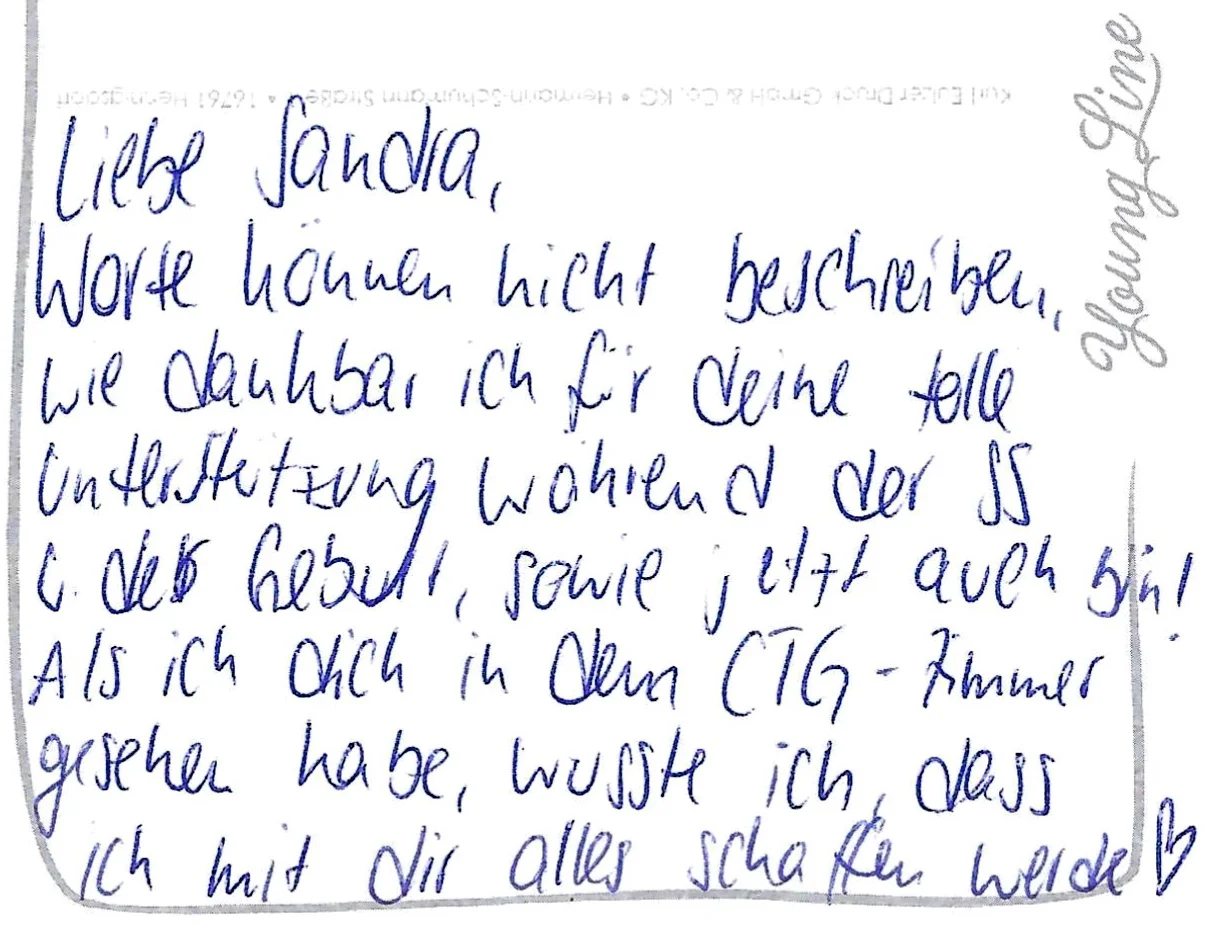 Kurt Eulzer Druck GmbH & Co. KG • Hermann-Schumann Straße • 16761 Hennigsdorf
Young Line
Liebe Sandra,
Worte können nicht beschreiben,
wie dankbar ich für deine tolle
Unterstützung während der SS
u. der Geburt, sowie jetzt auch bin!
Als ich dich in dem CTG-Zimmer
gesehen habe, wusste ich, dass
ich mit dir alles schaffen werde ♡